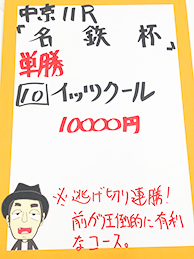 中京11R
「名鉄杯」
単勝
10 イッツクール
10000円
※逃げ切り連勝!
前が圧倒的に有利
なコース。